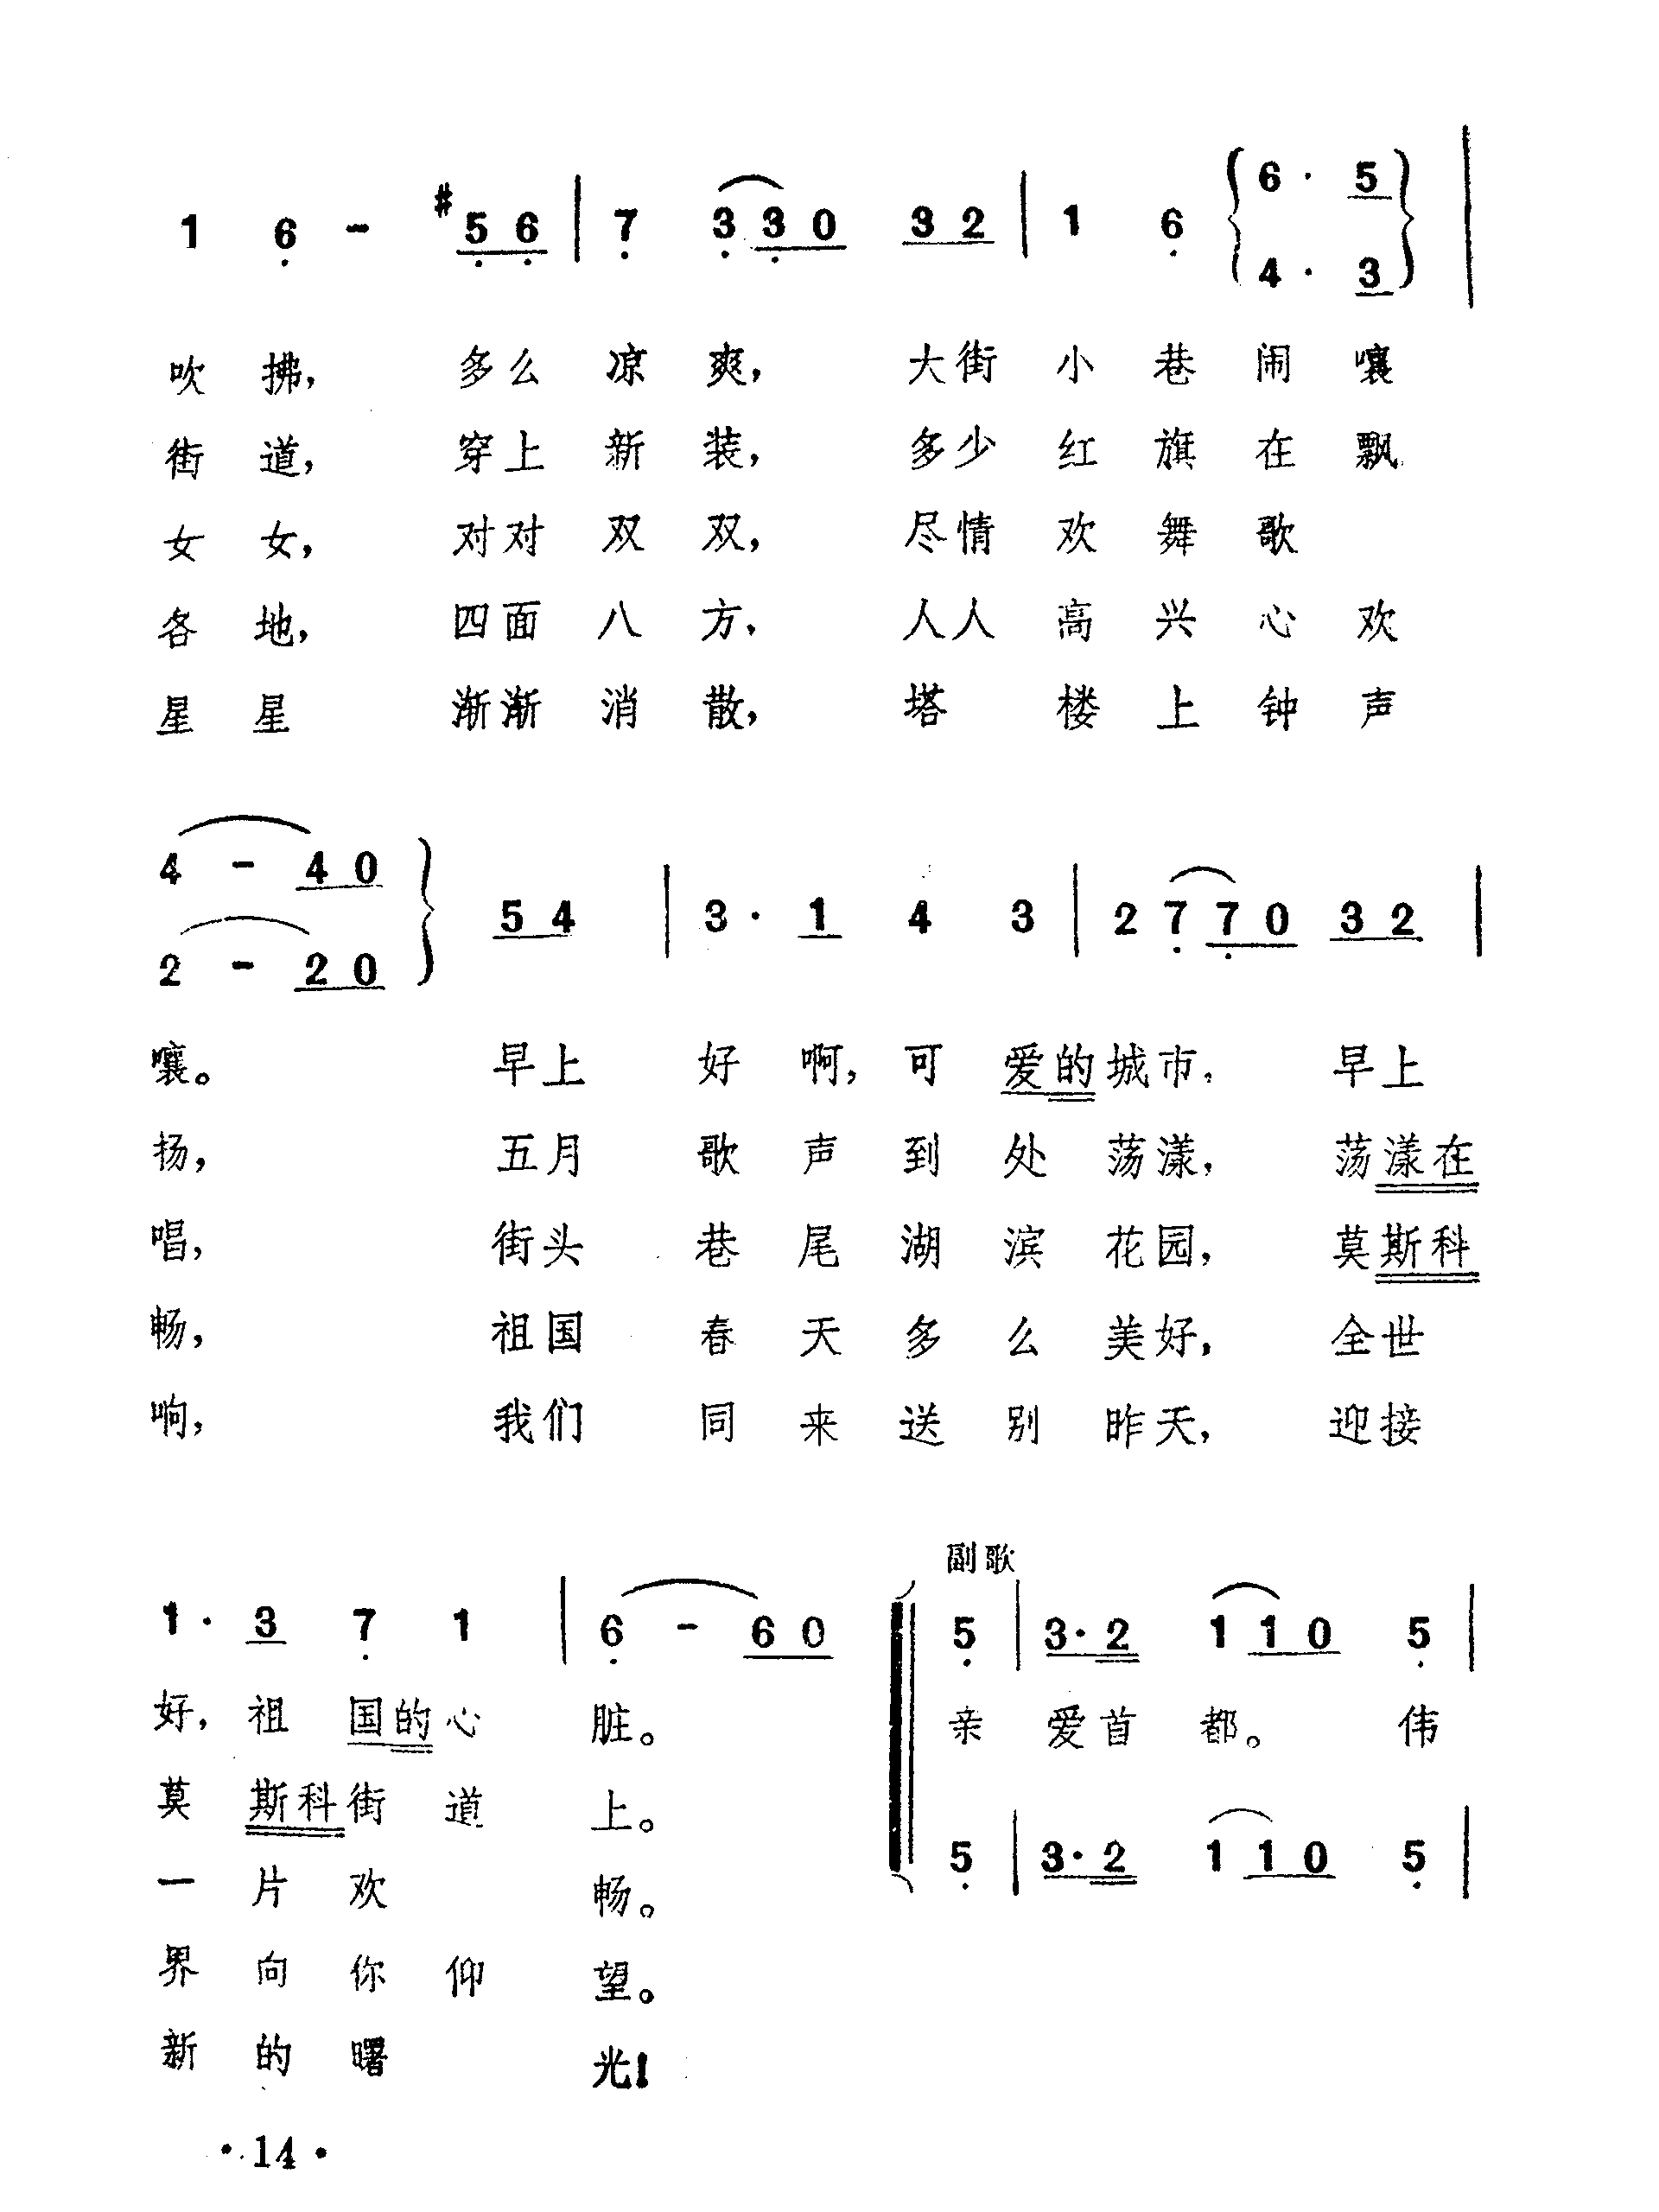 1 6 - #5 6 | 7 3 3 0 3 2 | 1 6 { 6 · 5 } |
4 · 3
吹 拂， 多么 凉 爽， 大街 小 巷 闹 嚷
街 道， 穿上 新 装， 多少 红 旗 在 飘
女 女， 对对 双 双， 尽情 欢 舞 歌
各 地， 四面 八 方， 人人 高 兴 心 欢
星 星 渐渐 消 散， 塔 楼 上 钟 声
4 - 4 0
5 4 | 3 · 1 4 3 | 2 7 7 0 3 2 |
2 - 2 0
嚷。 早上 好 啊，可 爱的 城市， 早上
扬， 五月 歌 声 到 处 荡漾， 荡漾在
唱， 街头 巷 尾 湖 滨 花园， 莫斯科
畅， 祖国 春 天 多 么 美好， 全世
响， 我们 同 来 送 别 昨天， 迎接
副歌
1 · 3 7 1 | 6 - 6 0 5 | 3 · 2 1 1 0 5 |
好，祖 国的心 脏。 亲 爱首 都。 伟
莫 斯科街 道 上。
5 | 3 · 2 1 1 0 5 |
一 片 欢 畅。
界 向 你 仰 望。
新 的 曙 光！
· 14 ·